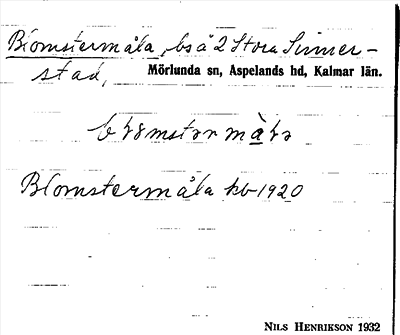 Blomstermåla, bs å 2 Stora Sinner-
stad,
Mörlunda sn, Aspelands hd, Kalmar län.
Blomstermåla kb 1920
NILS HENRIKSON 1932